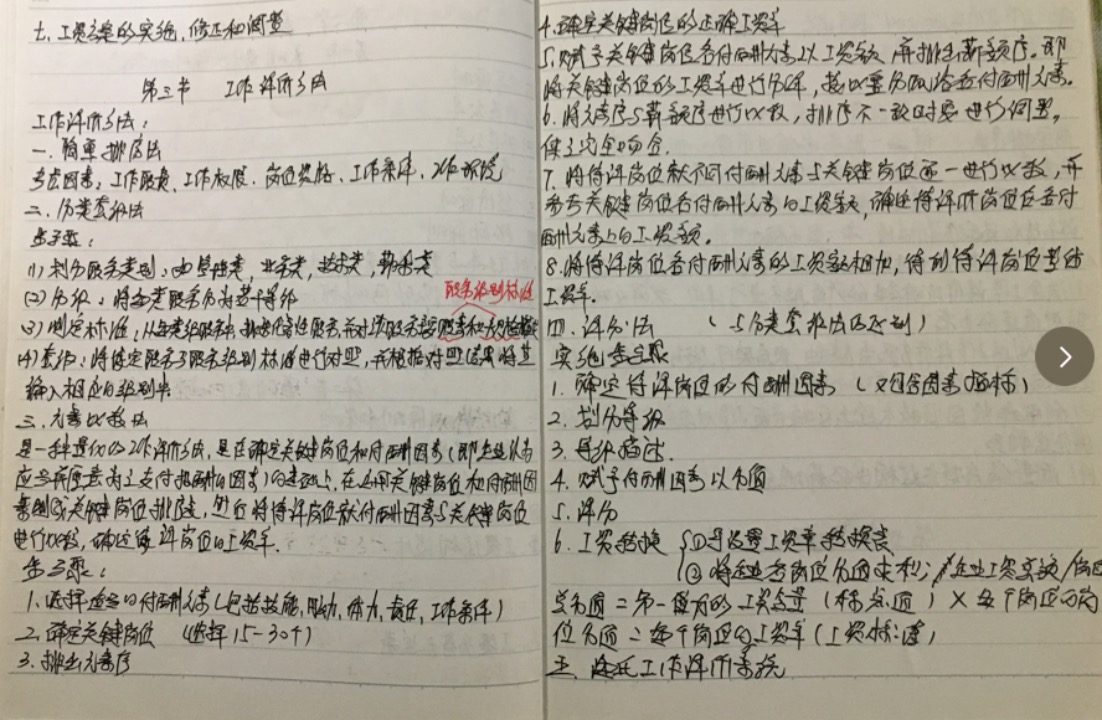 七、工资方案的实施、修正和调整
第三节 工作评价方法
工作评价方法：
一、简单排序法
考虑因素：工作职责、工作权限、岗位资格、工作条件、工作环境
二、分类套级法
步骤：
(1) 划分职务类别：如管理类，业务类，技术类，勤杂类
(2) 分级：将每类职务分为若干等级
职务级别标准
(3) 制定标准，从每类级职务中，职务，并对该职务
(4) 套级：将待定职务与职务级别标准进行对照，并根据对照结果将其
输入相应的级别中
三、元素比较法
是一种量化的工作评价方法，是在确定关键岗位和付酬因素（即企业认为
应当并愿意为之支付报酬的因素）的基础上，在运用关键岗位和付酬因
素制成关键岗位排序表，然后将待评岗位就付酬因素与关键岗位
进行比较，确定待评岗位的工资率.
步骤：
1、选择适当的付酬元素（包括技能，脑力，体力，责任，工作条件）
2、确定关键岗位 （选择15-30个）
3、排出元素序
4、确定关键岗位的正确工资率
5、赋予关键岗位各付酬元素以工资额，并排出薪额序。即
将关键岗位的工资率进行分解，按比重分配给各付酬元素。
6、将元素序与薪额序进行比较，排序不一致时要进行调整，
使之完全吻合.
7、将待评岗位就不同付酬元素与关键岗位逐一进行比较，并
参考关键岗位各付酬元素的工资额，确定待评价岗位在各付
酬元素上的工资额。
8、将待评岗位各付酬元素的工资额相加，得到待评岗位基础
工资率.
四、评分法 （与分类套级法的区别）
实施步骤
1、确定待评岗位的付酬因素 （又包含因素指标）
2、划分等级
3、等级描述.
4、赋予付酬因素以分值
5、评分
6、工资转换 ①可设置工资率转换表
② 将企业各岗位分值求和；企业工资总额/岗位
总分值＝第一单分的工资含量（标点值）× 每个岗位的岗
位分值＝每个岗位的工资率（工资标准）
五、海氏工作评价系统